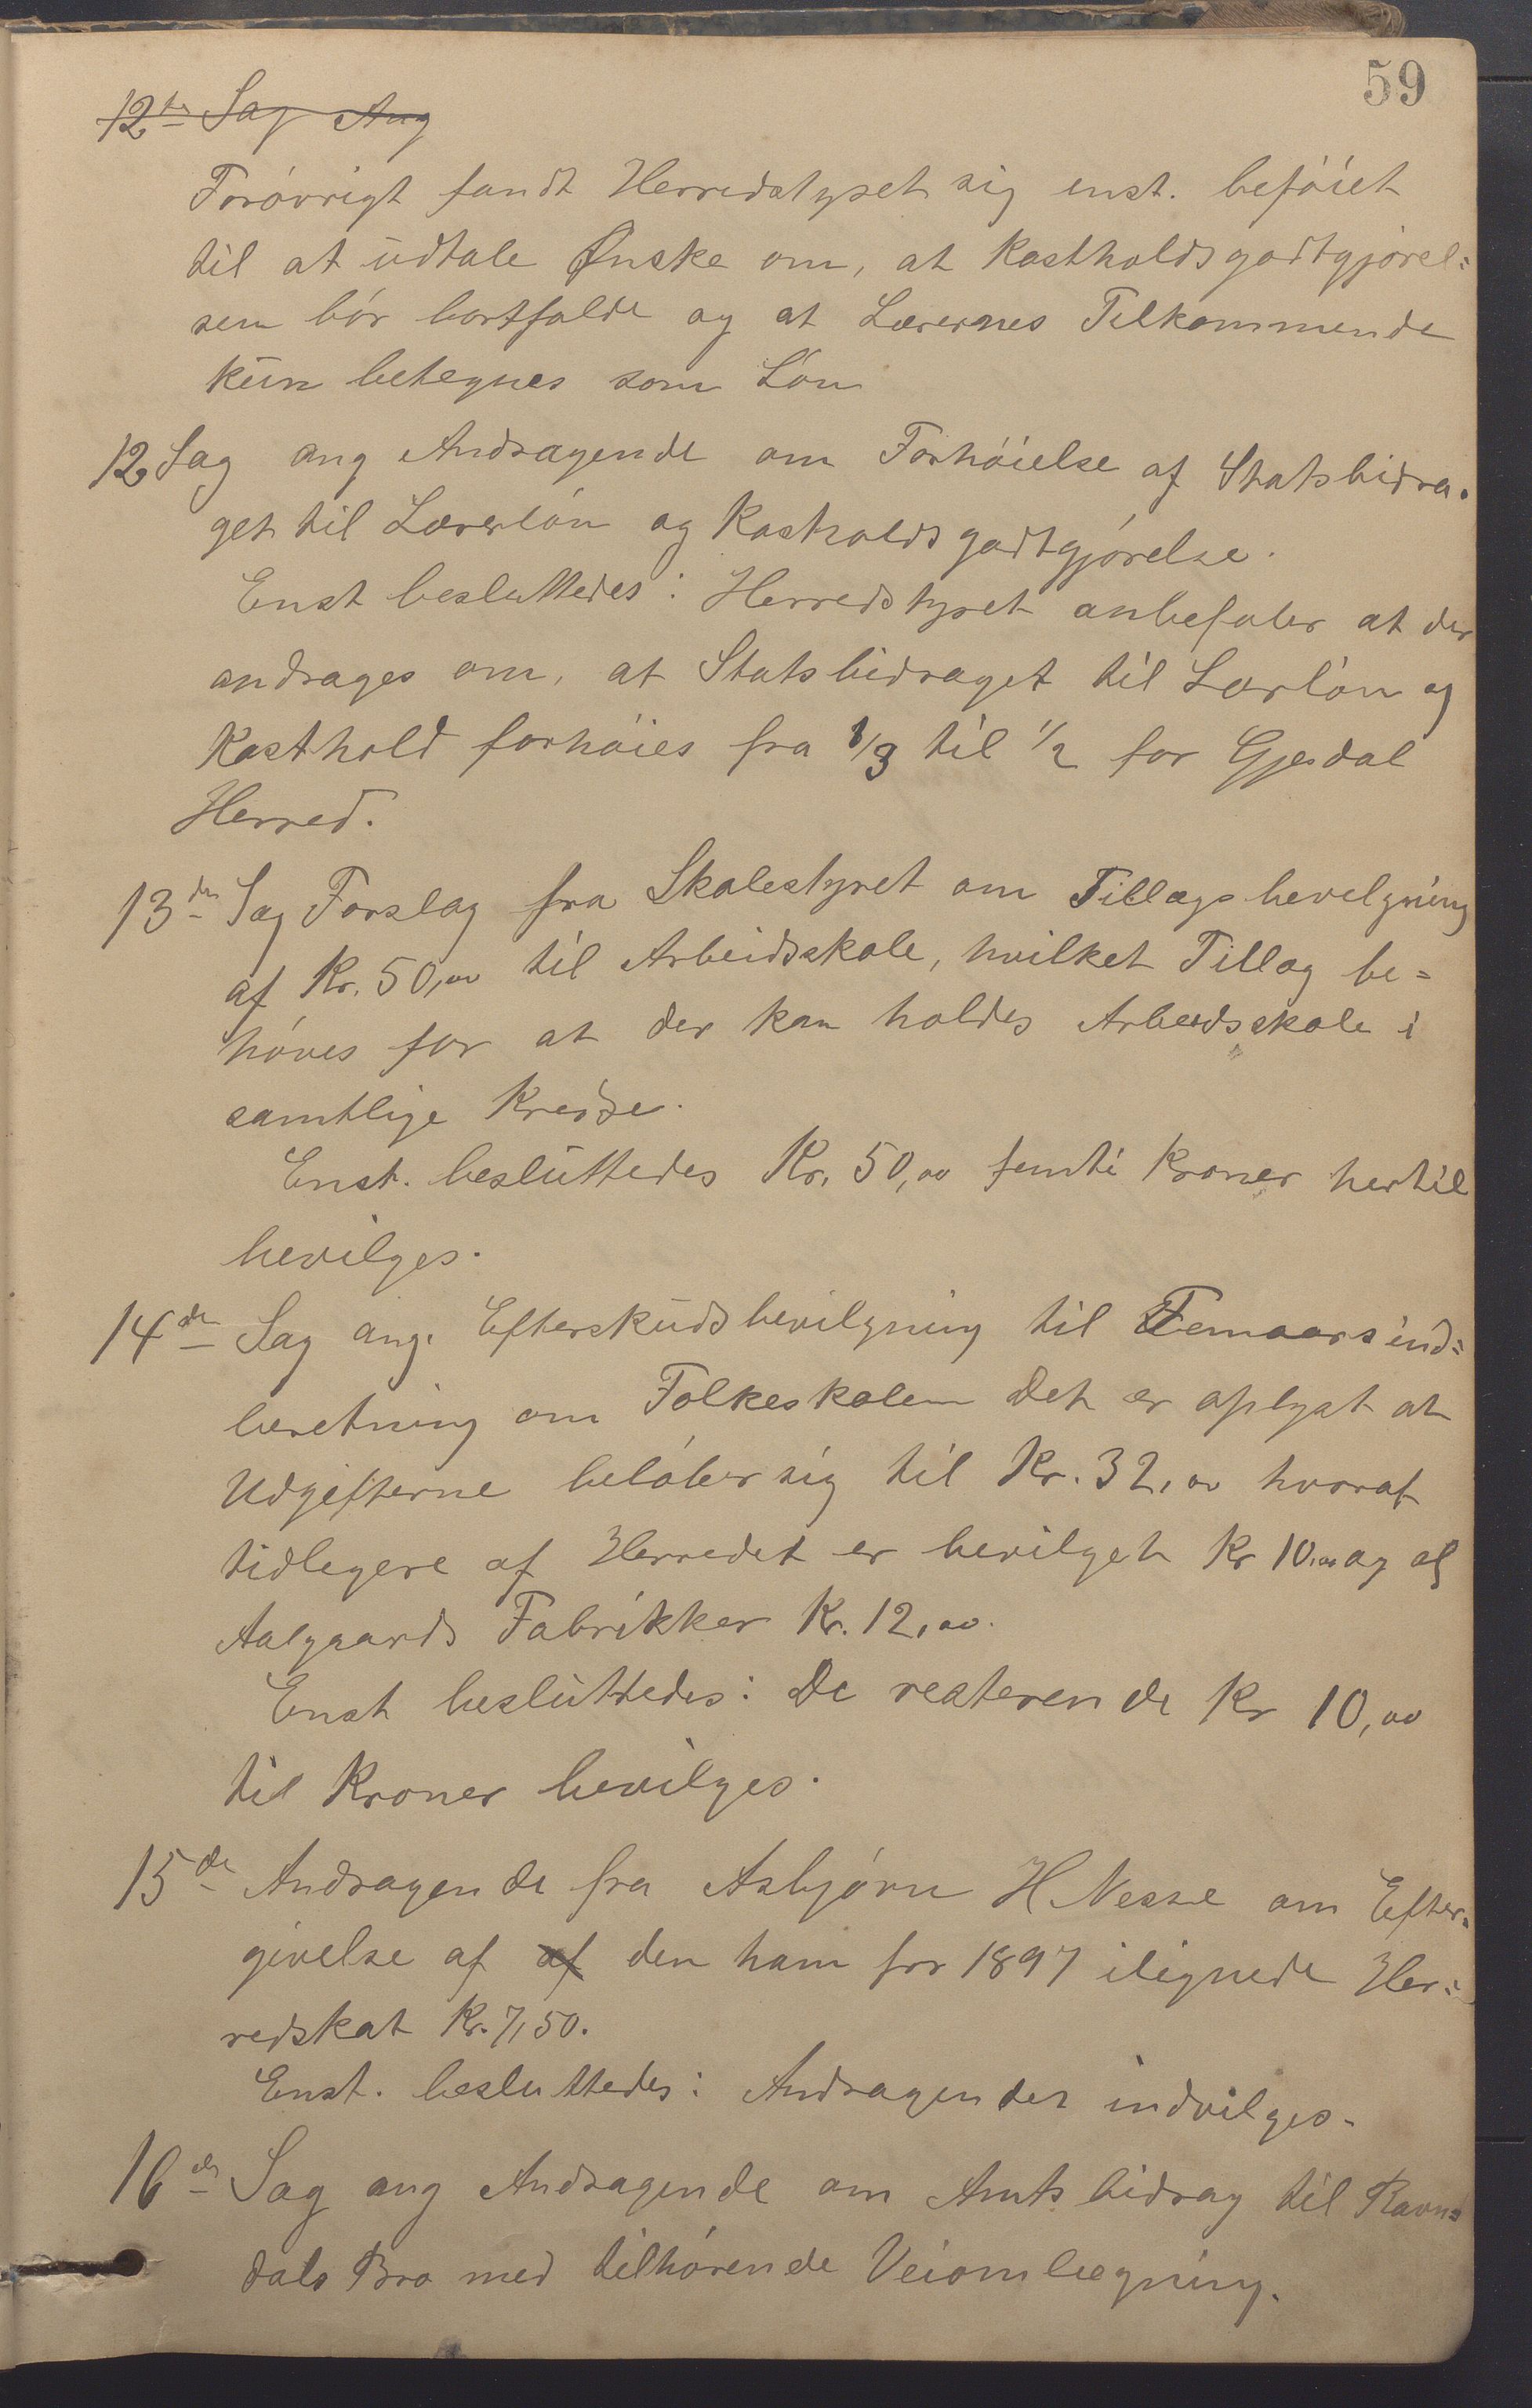 59
12te Sag Ang
Forøvrigt fandt Herredstyret sig enst. beføiet
til at udtale Ønske om, at Kostholdsgodtgjørel=
sen bør bortfalde og at Lærernes Tilkommende
kun betegnes som Løn
12 Sag ang Andragende om Forhøielse af Statsbidra-
get til Lærerløn og Kostholdsgodtgjørelse.
Enst besluttedes: Herredstyret anbefaler at der
andrages om, at Statsbidraget til Lærløn og
Kosthold forhøies fra 1/3 til 1/2 for Gjesdal
Herred.
13de Sag Forslag fra Skolestyret om Tillægsbevelgning
af Kr. 50,00 til Arbeidsskole, hvilket Tillæg be=
høves for at der kan holdes Arbeidsskole i
samtlige Kredse.
Enst. besluttedes Kr. 50,00 femti Kroner hertil
bevilges.
14de Sag ang. Efterskudsbevilgning til Femaarsind=
beretning om Folkeskolen Det er oplyst at
Udgifterne beløber sig til Kr. 32,00 hvoraf
tidligere af Herredet er bevilget Kr 10,00 og af
Aalgaards Fabrikker Kr. 12,00.
Enst besluttedes: De resterende Kr 10,00
til Kroner bevilges.
15de Andragende fra Asbjørn H Nesse om Efter=
givelse af af den ham for 1897 ilignede Her=
redskat Kr. 7,50.
Enst. besluttedes: Andragendet indvilges.
16de Sag ang Andragende om Amtsbidrag til Ravn=
dals Bro med tilhørende Veiomlægning.